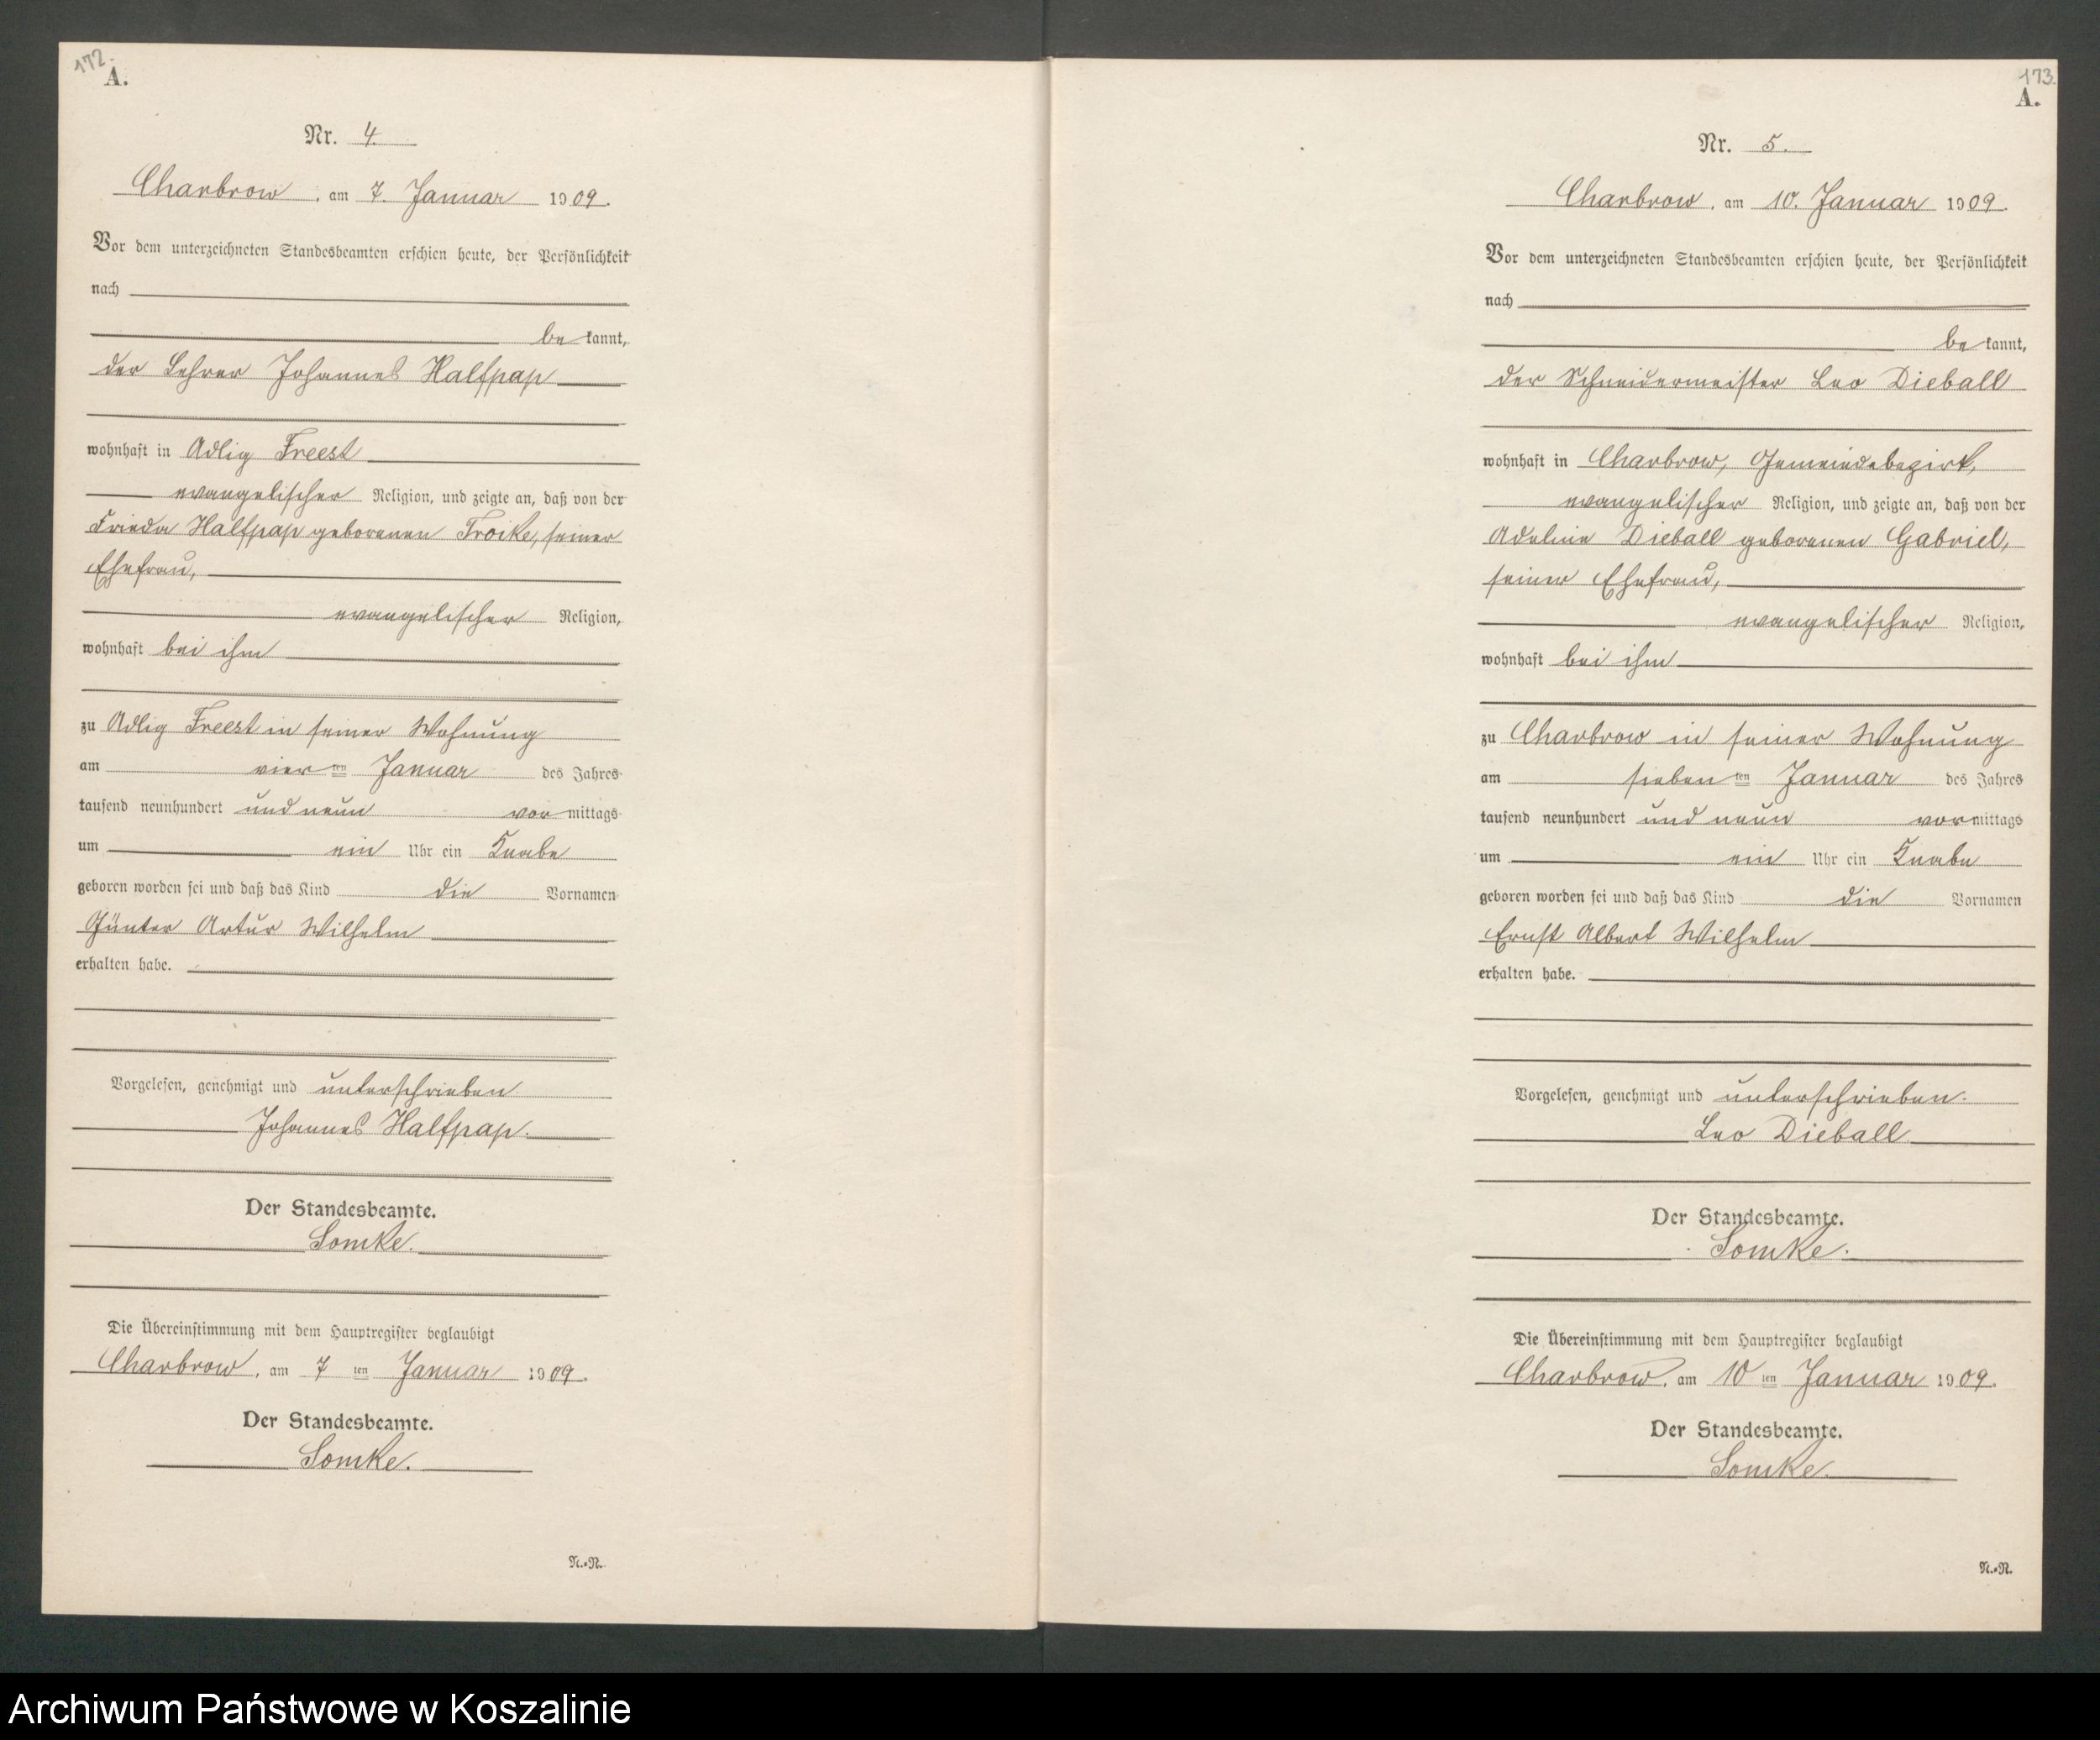 172.
A.
Nr. 4.
Charbrow, am 7. Januar 1909.
Vor dem unterzeichneten Standesbeamten erschien heute, der Persönlichkeit
nach
be kannt,
der Lehrer Johannes Halfpap
wohnhaft in Adlig Freest
evangelischer Religion, und zeigte an, daß von der
Frieda Halfpap geborenen Troike, seiner
Ehefrau,
evangelischer Religion,
wohnhaft bei ihm
zu Adlig Freest in seiner Wohnung
am vier ten Januar des Jahres
tausend neunhundert und neun vor mittags
um ein Uhr ein Knabe
geboren worden sei und daß das Kind die Vornamen
Günter Artur Wilhelm
erhalten habe.
Vorgelesen, genehmigt und unterschrieben
Johannes Halfpap.
Der Standesbeamte.
Somke.
Die Übereinstimmung mit dem Hauptregister beglaubigt
Charbrow, am 7 ten Januar 1909.
Der Standesbeamte.
Somke.
N.-N.
173.
A.
Nr. 5.
Charbrow, am 10. Januar 1909.
Vor dem unterzeichneten Standesbeamten erschien heute, der Persönlichkeit
nach
be kannt,
der Schneidermeister Leo Dieball
wohnhaft in Charbrow, Gemeindebezirk,
evangelischer Religion, und zeigte an, daß von der
Adeline Dieball geborenen Gabriel,
seiner Ehefrau,
evangelischer Religion,
wohnhaft bei ihm
zu Charbrow in seiner Wohnung
am sieben ten Januar des Jahres
tausend neunhundert und neun vor mittags
um ein Uhr ein Knabe
geboren worden sei und daß das Kind die Vornamen
Ernst Albert Wilhelm
erhalten habe.
Vorgelesen, genehmigt und unterschrieben.
Leo Dieball
Der Standesbeamte.
Somke.
Die Übereinstimmung mit dem Hauptregister beglaubigt
Charbrow, am 10 ten Januar 1909.
Der Standesbeamte.
Somke.
N.-N.
Archiwum Państwowe w Koszalinie